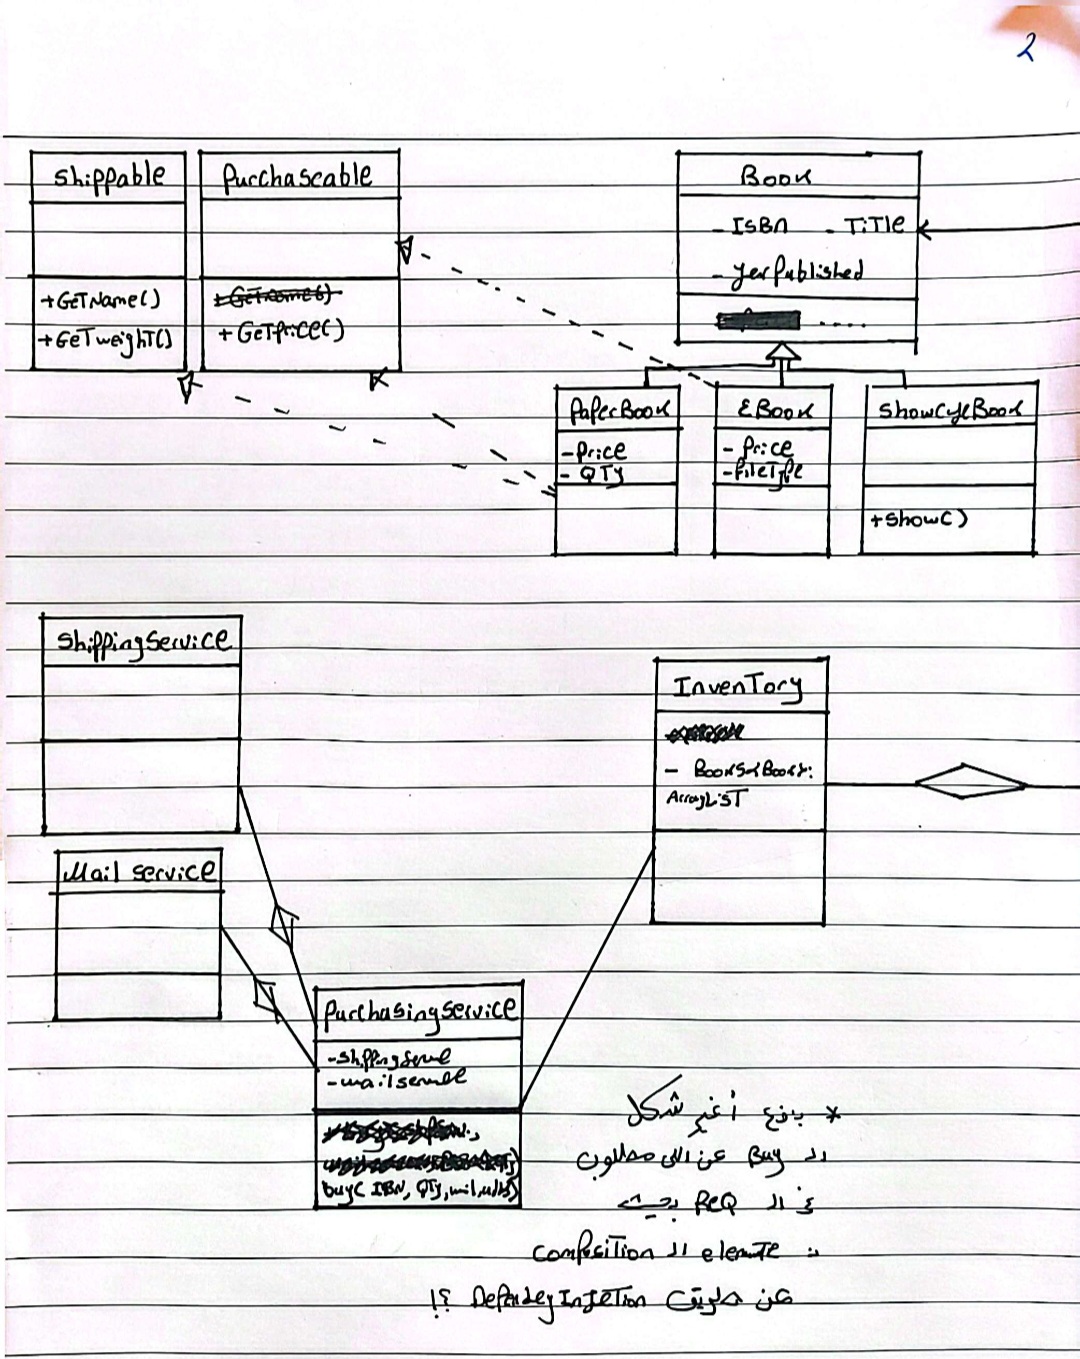 2
Shippable
+GeTName()
+GeTweighT()
Purchaseable
+GeTname()
+ GeTPrice()
Book
- ISBn - TiTle
- yerPublished
.....
PaperBook
- Price
- QTy
EBook
- Price
- FileType
ShowCyleBook
+Show()
ShippingService
Mail service
InvenTory
- Books<Book>:
ArrayLisT
PurchasingService
- shippingServe
- mailservece
buy( ISBN, QTy,
* ينفع أغير شكل
الـ Buy عن اللي مطلوب
في الـ ReQ بحيث
الـ composiTion
عن طريق InjeTion ؟!